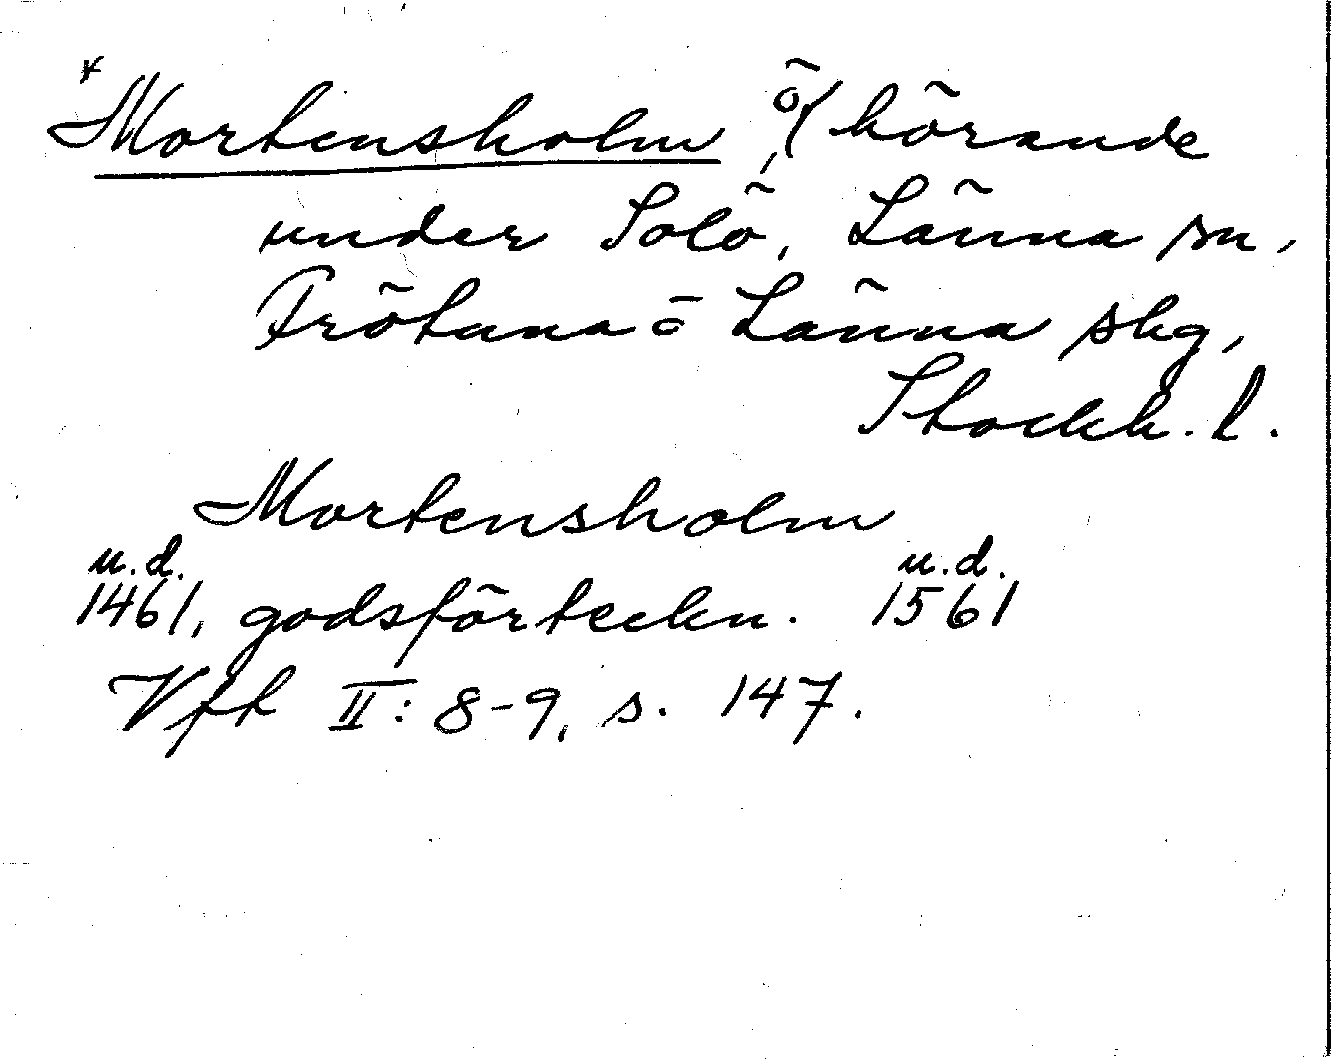 * Mortensholm, ö/ hörande
under Solö, Länna sn,
Frötuna o Länna skg,
Stockh. l.
Mortensholm
u.d. u.d.
1461, godsförteckn. 1561
Vft II: 8-9, s. 147.